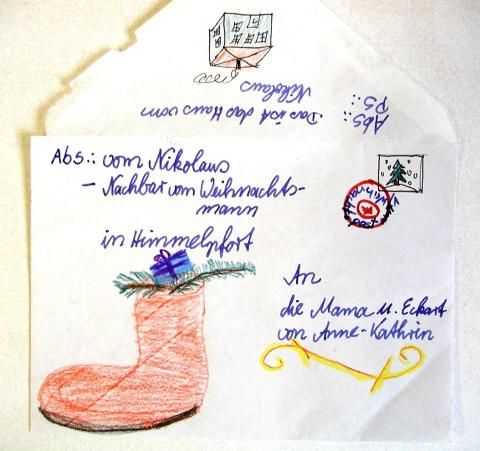 Abs.: PS
Das ist das Haus vom
Nikolaus
Abs.: vom Nikolaus
– Nachbar vom Weihnachts-
mann
in Himmelpfort
An
die Mama u. Eckart
von Anne-Kathrin